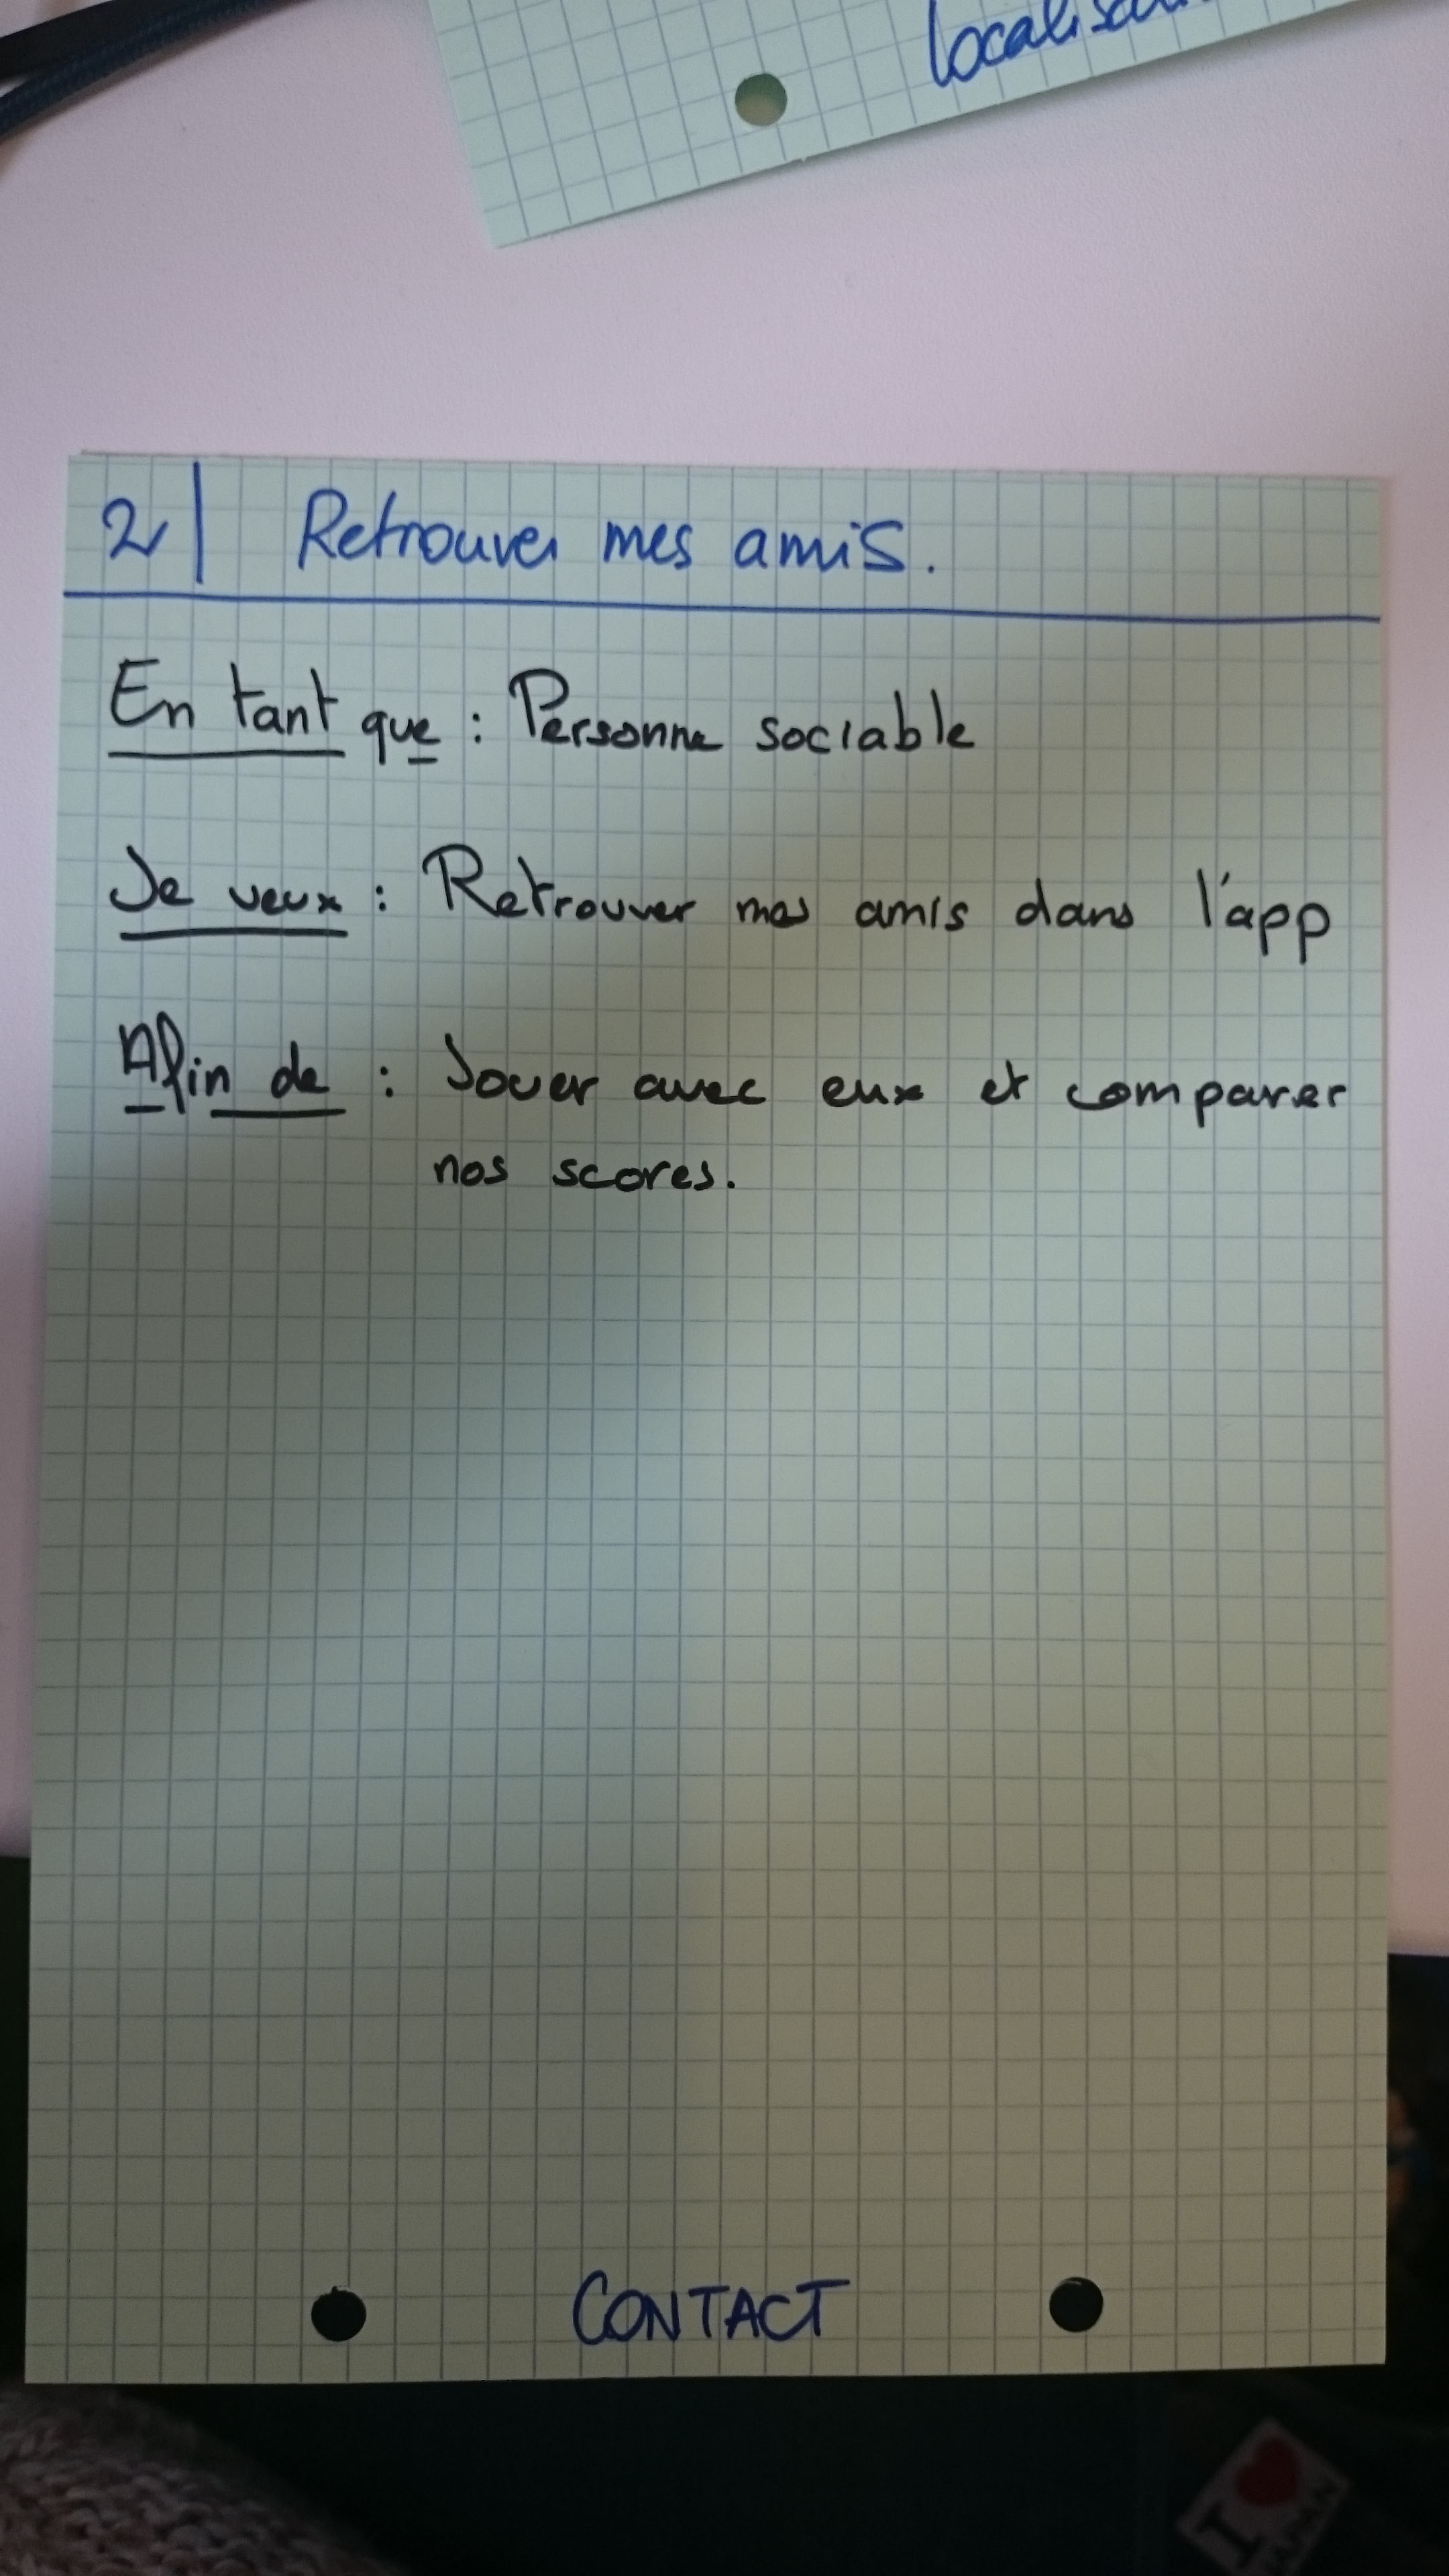 2| Retrouver mes amis.
En tant que : Personne sociable
Je veux : Retrouver mes amis dans l'app
Afin de : Jouer avec eux et comparer
nos scores.
CONTACT
I ❤